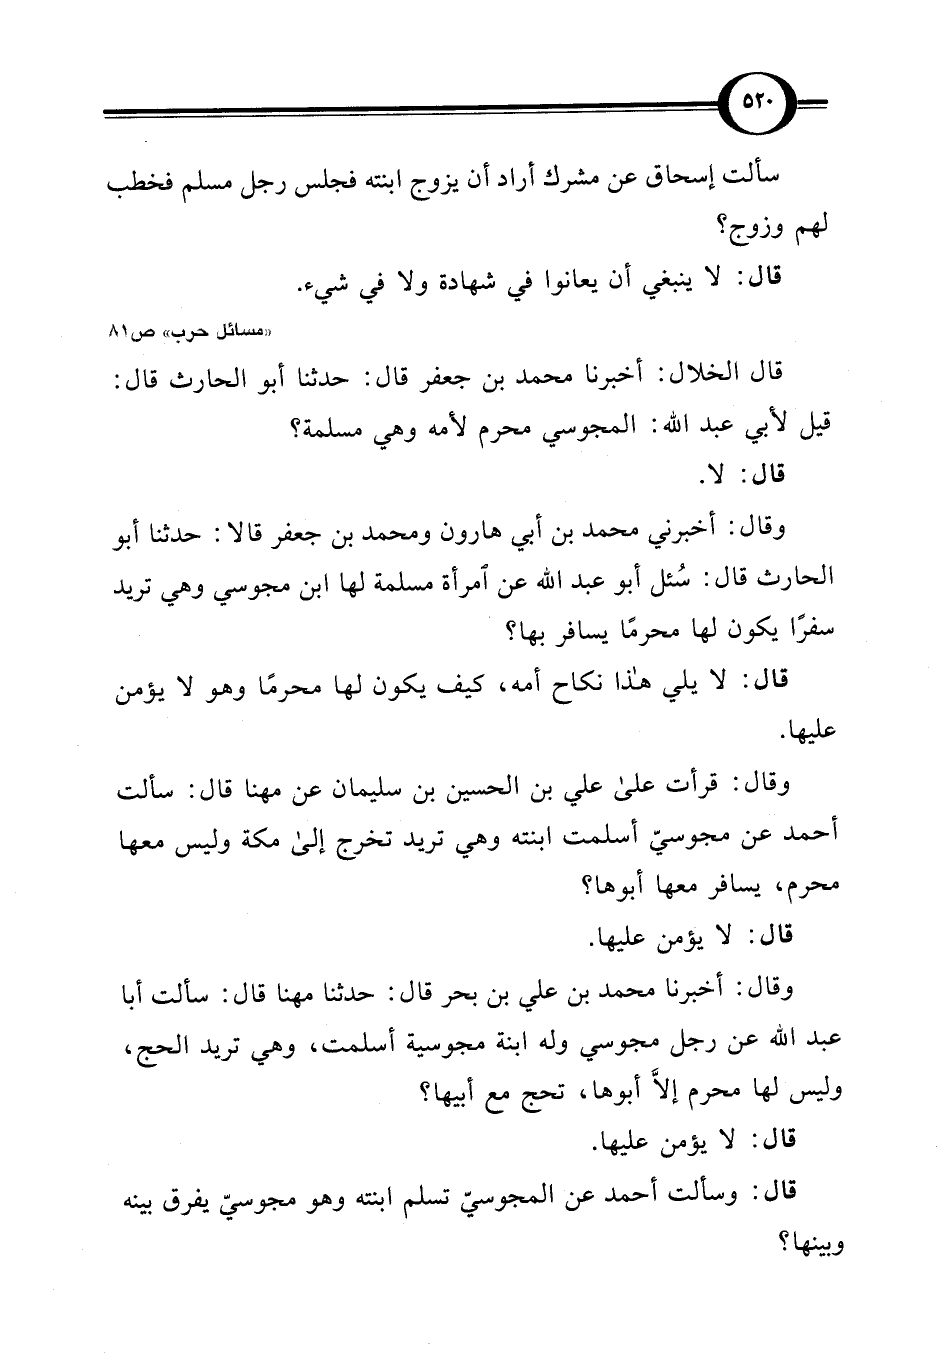 ٥٢٠
سألت إسحاق عن مشرك أراد أن يزوج ابنته فجلس رجل مسلم فخطب
لهم وزوج؟
قال: لا ينبغي أن يعانوا في شهادة ولا في شيء.
«مسائل حرب» ص٨١
قال الخلال: أخبرنا محمد بن جعفر قال: حدثنا أبو الحارث قال:
قيل لأبي عبد الله: المجوسي محرم لأمه وهي مسلمة؟
قال: لا.
وقال: أخبرني محمد بن أبي هارون ومحمد بن جعفر قالا: حدثنا أبو
الحارث قال: سُئل أبو عبد الله عن ٱمرأة مسلمة لها ابن مجوسي وهي تريد
سفرًا يكون لها محرمًا يسافر بها؟
قال: لا يلي هذا نكاح أمه، كيف يكون لها محرمًا وهو لا يؤمن
عليها.
وقال: قرأت علىٰ علي بن الحسين بن سليمان عن مهنا قال: سألت
أحمد عن مجوسيّ أسلمت ابنته وهي تريد تخرج إلىٰ مكة وليس معها
محرم، يسافر معها أبوها؟
قال: لا يؤمن عليها.
وقال: أخبرنا محمد بن علي بن بحر قال: حدثنا مهنا قال: سألت أبا
عبد الله عن رجل مجوسي وله ابنة مجوسية أسلمت، وهي تريد الحج،
وليس لها محرم إلاَّ أبوها، تحج مع أبيها؟
قال: لا يؤمن عليها.
قال: وسألت أحمد عن المجوسيّ تسلم ابنته وهو مجوسيّ يفرق بينه
وبينها؟